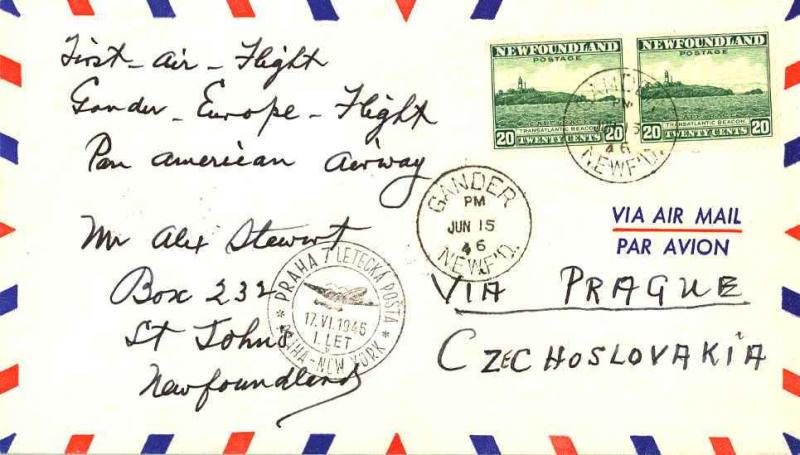 First - air - Flight
Gander - Europe - Flight
Pan American Airway
Mr Alex Stewart
Box 232
St John's
Newfoundland
NEWFOUNDLAND
POSTAGE
TRANSATLANTIC BEACON
20 TWENTY CENTS 20
NEWFOUNDLAND
POSTAGE
TRANSATLANTIC BEACON
20 TWENTY CENTS 20
46
NEWF'D.
GANDER
PM
JUN 15
46
NEWF'D.
VIA AIR MAIL
PAR AVION
VIA PRAGUE
CZECHOSLOVAKIA
PRAHA 7 LETECKÁ POŠTA
17.VI.1946
1. LET
PRAHA-NEW YORK